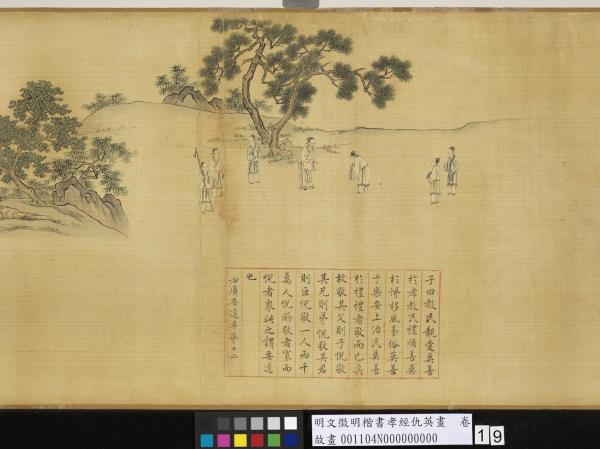 子曰教民親愛莫善
於孝教民禮順莫善
於悌移風易俗莫善
于樂安上治民莫善
於禮禮者敬而已矣
故敬其父則子悅敬
其兄則弟悅敬其君
則臣悅敬一人而千
萬人悅所敬者寡而
悅者衆此之謂要道
也
右廣要道章第十二
明文徵明楷書孝經仇英畫 卷
故畫 001104N000000000
19